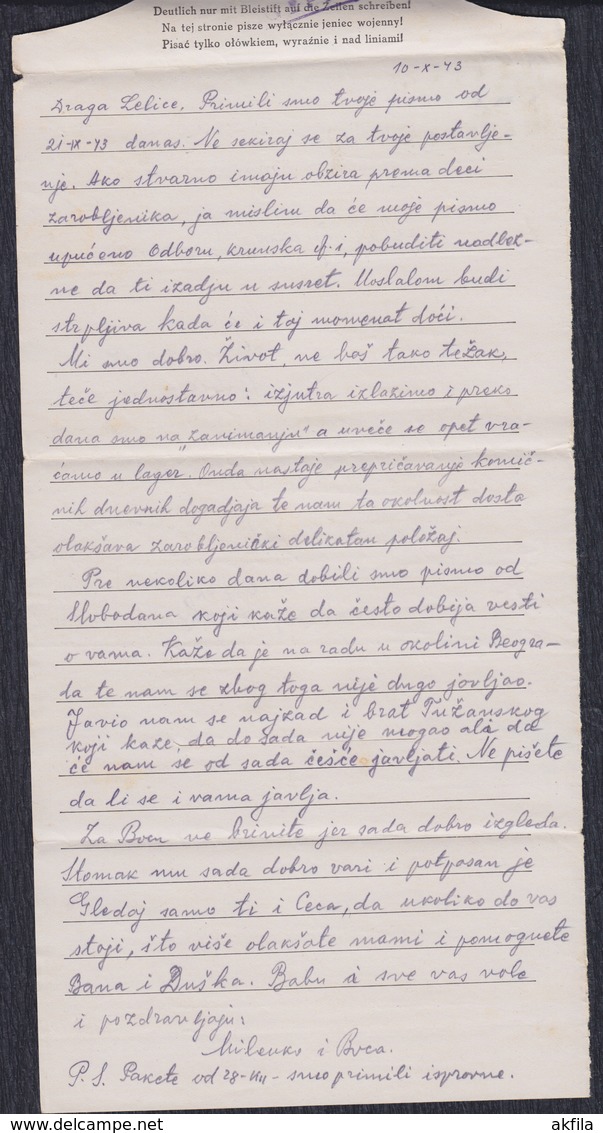 Deutlich nur mit Bleistift auf die Zeilen schreiben!
Na tej stronie pisze wyłącznie jeniec wojenny!
Pisać tylko ołówkiem, wyraźnie i nad liniami!
10-X-43
Draga Lelice. Primili smo tvoje pismo od
21-IX-43 danas. Ne sekiraj se za tvoje postavlje-
nje. Ako stvarno imaju obzira prema deci
zarobljenika, ja mislim da će moje pismo
upućeno Odboru, krunska pobuditi nadlež-
ne da ti izadju u susret. Uostalom budi
strpljiva kada će i taj momenat doći.
Mi smo dobro. Život, ne baš tako težak,
teče jednostavno: izjutra izlazimo i preko
dana smo na „zanimanju" a uveče se opet vra-
ćamo u lager. Onda nastaje prepričavanje komič-
nih dnevnih dogadjaja te nam ta okolnost dosta
olakšava zarobljenički delikatan položaj.
Pre nekoliko dana dobili smo pismo od
Slobodana koji kaže da često dobija vesti
o vama. Kaže da je na radu u okolini Beogra-
da te nam se zbog toga nije dugo javljao.
Javio nam se najzad i brat Tužanskog
koji kaze, da do sada nije mogao ali da
će nam se od sada češće javljati. Ne pišete
da li se i vama javlja.
Za Bocu ne brinite jer sada dobro izgleda.
Stomak mu sada dobro vari i potpasan je
Gledaj samo ti i Ceca, da ukoliko do vas
stoji, što više olakšate mami i pomognete
Bana i Duška. Babu i sve vas vole
i pozdravljaju:
Milenko i Boca.
P.S. Pakete od 28-VIII- smo primili ispravne.
akfila